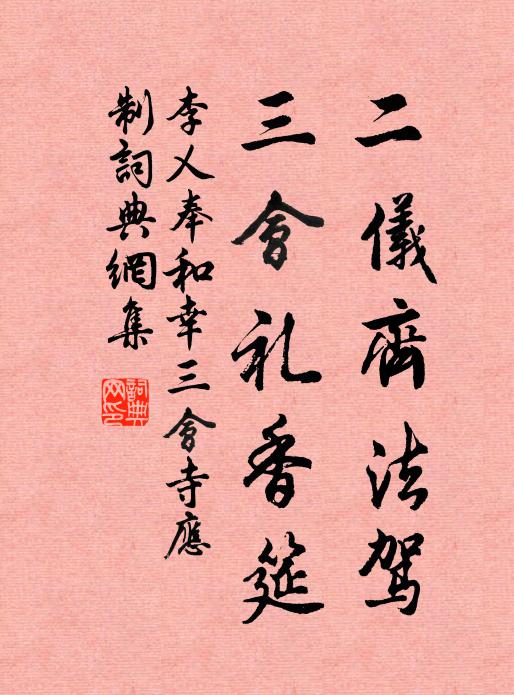 二儀齊法駕
三會礼香筵
李乂奉和幸三會寺應
制詞典網集
詞典網印